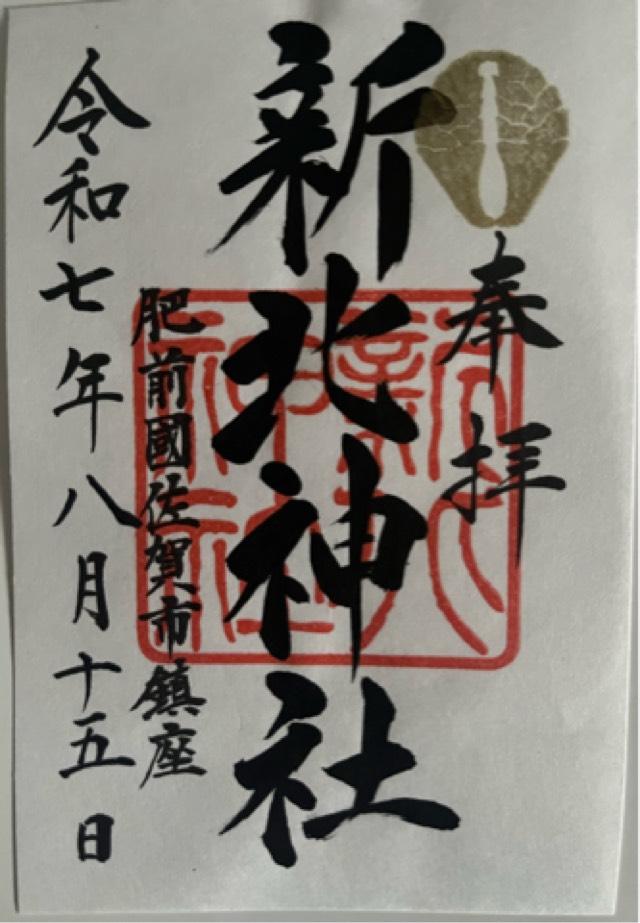 奉拝
新北神社
肥前國佐賀市鎮座
令和七年八月十五日